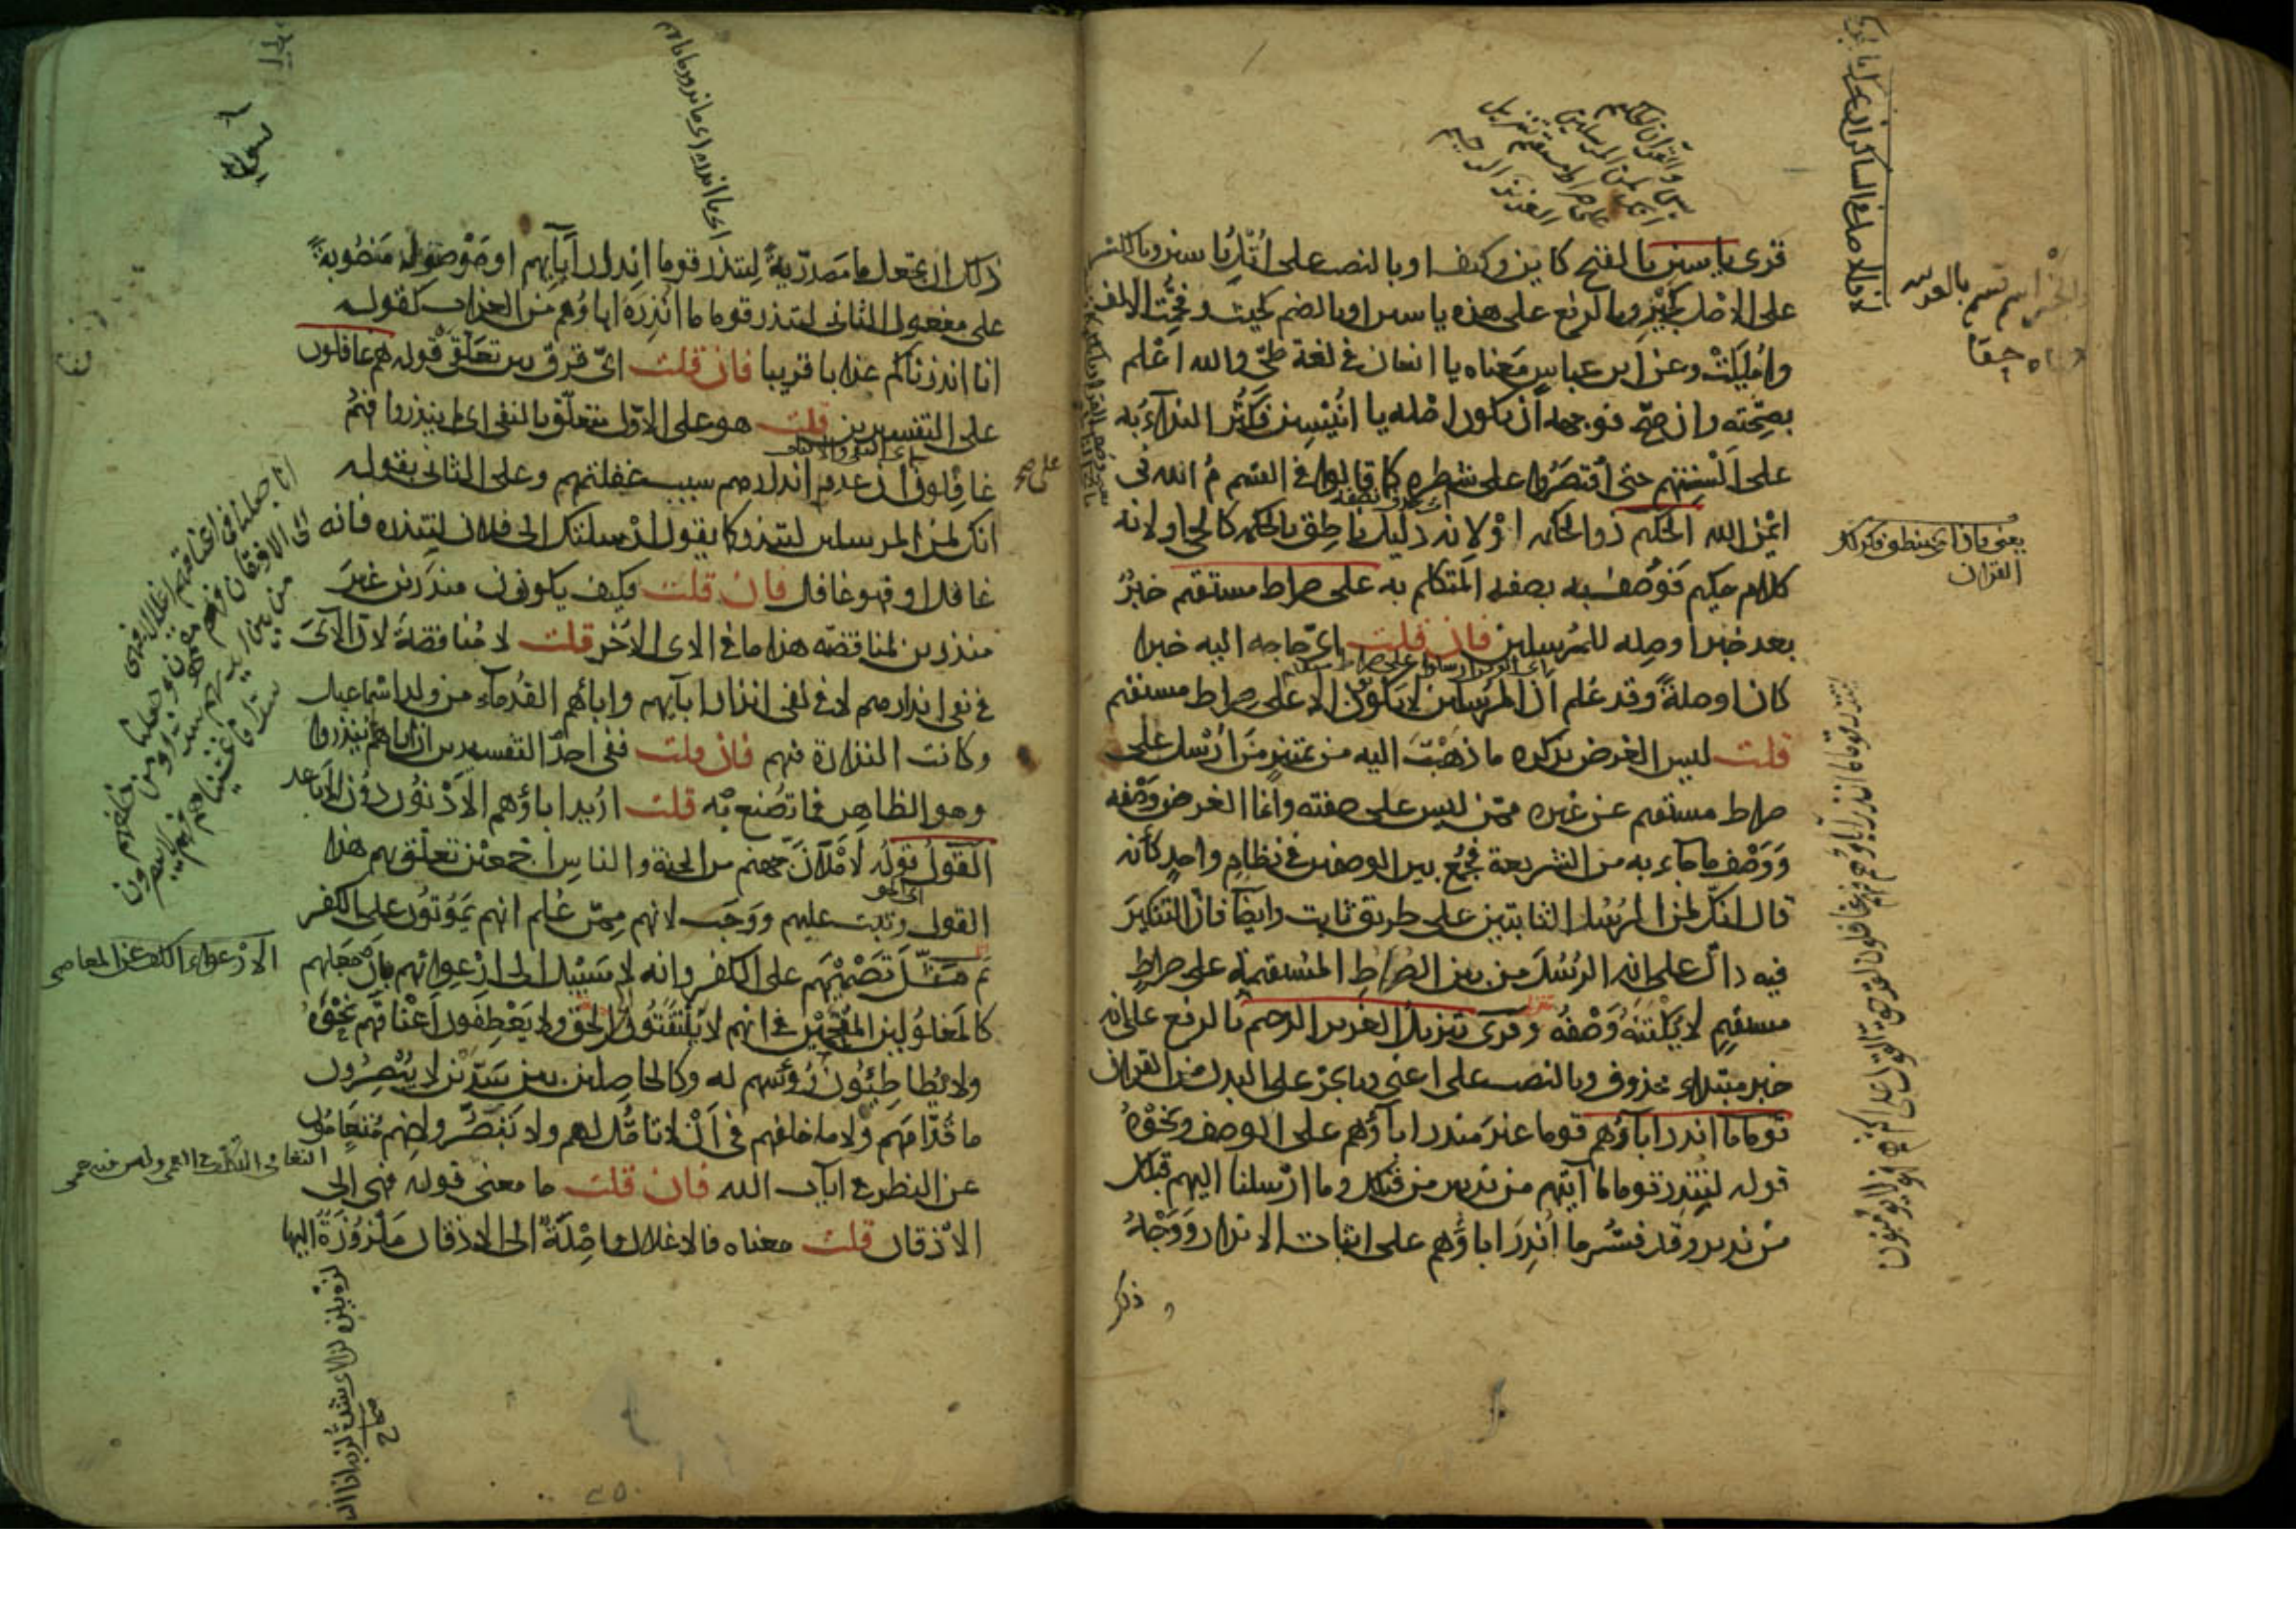 قرئ ياسين بالفتح كاين وكيف او بالنصب على اتل ياسين وبالكسر
على الاصل كجير وبالرفع على هذه ياسين او بالضم كحيث وفخمت الالف
واميلت وعن ابن عباس معناه يا انسان في لغة طي والله اعلم
بصحته وان صح فوجهه ان يكون اصله يا انيسين فكثر النداء به
على السنتهم حتى اقتصروا على شطره كما قالوا في القسم م الله في
ايمن الله الحكيم ذو الحكمه او لانه دليل ناطق بالحكمه كالحي او لانه
كلام حكيم فوصف به بصفه المتكلم به على صراط مستقيم خبر
بعد خبر او صله للمرسلين فان قلت اي حاجه اليه خبرا
كان او صلة وقد علم ان المرسلين لا يكونون الا على صراط مستقيم
قلت ليس الغرض بذكره ما ذهبت اليه من تمييز من ارسل على
صراط مستقيم عن غيره ممن ليس على صفته وانما الغرض وصفه
ووصف ما جاء به من الشريعة فجمع بين الوصفين في نظام واحد كأنه
قال انك لمن المرسلين الثابتين على طريق ثابت وايضا فان التنكير
فيه دال على انه ارسل من بين الصراط المستقيمة على صراط
مستقيم لا يكتنه وصفه وقرئ تنزيل العزيز الرحيم بالرفع على انه
خبر مبتداء محذوف وبالنصب على اعني وبالجر على البدل من القران
قوما ما انذر اباؤهم قوما غير منذر اباؤهم على الوصف ونحوه
قوله لتنذر قوما ما اتيهم من نذير من قبلك وما ارسلنا اليهم قبلك
من نذير وقد فسر ما انذر اباؤهم على اثبات الانذار ووجه
ذكر
يس والقران الحكيم
انك لمن المرسلين
على صراط مستقيم تنزيل
العزيز الرحيم
يعني
القران
لتنذر قوما ما انذر اباؤهم فهم غافلون لقد حق القول على اكثرهم فهم لا يؤمنون
ذلك ان تجعل ما مصدرية لتنذر قوما انذار آبآيهم او موصولة منصوبة
على مفعول الثاني لتنذر قوما ما انذره اباؤهم من العذاب كقوله
انا انذرناكم عذابا قريبا فان قلت اي فرق بين تعلق قوله فهم غافلون
على التفسيرين قلت هو على الاول متعلق بالنفي اي لم ينذروا فهم
غافلون ان عدم انذارهم سبب غفلتهم وعلى الثاني بقوله
انك لمن المرسلين لتنذر كما يقول ارسلتك الى فلان لتنذره فانه
غافل او فهو غافل فان قلت وكيف يكونون منذرين غير
منذرين لمناقضه هذا ما في الاى الاخر قلت لا مناقضة لان الاى
في نفي انذارهم لا في نفي انذار ابآيهم وابآئهم القدمآء من ولد اسماعيل
وكانت النذارة فيهم فان قلت ففي احد التفسيرين ان اباهم لم ينذروا
وهو الظاهر فما تصنع به قلت اريد اباؤهم الادنون دون الاباعد
القول قوله لاملان جهنم من الجنة والناس اجمعين تعلق بهم هذا
القول وثبت عليهم ووجب لانهم ممن علم انهم يموتون على الكفر
ثم مثل تصميمهم على الكفر وانه لا سبيل الى ارعوائهم بان جعلهم
كالمغلولين المقمحين في انهم لا يلتفتون الى الحق ولا يعطفون اعناقهم نحوه
ولا يطاطئون رؤسهم له وكالحاصلين بين سدين لا يبصرون
ما قدامهم ولا ما خلفهم في ان لا تامل لهم ولا تبصر وانهم متعامون
عن النظر في ايات الله فان قلت ما معنى قوله فهي الى
الاذقان قلت معناه فالاغلال واصلة الى الاذقان ملزوزة اليها
انا جعلنا في اعناقهم اغلالا فهي
الى الاذقان فهم مقمحون وجعلنا
من بين ايديهم سدا ومن خلفهم
سدا فاغشيناهم فهم لا يبصرون
الكف عن المعاصي